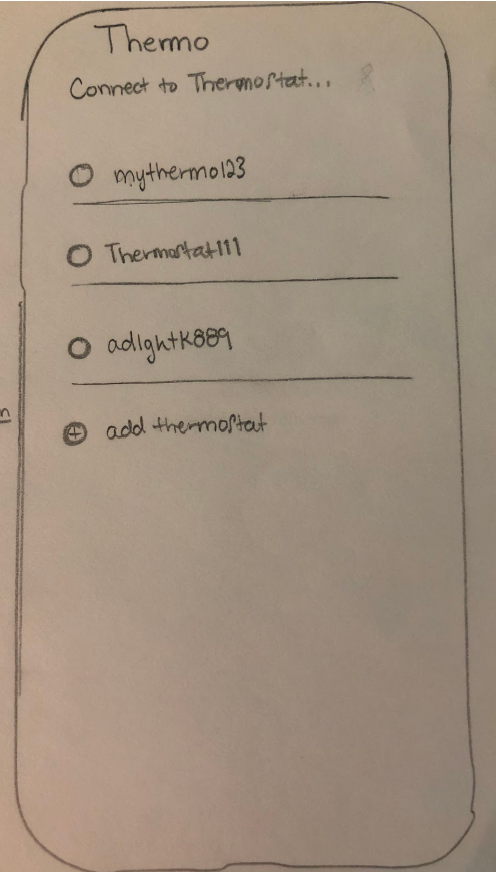 Thermo
Connect to Thermostat...
mythermo123
Thermostat111
adlghtk889
add thermostat